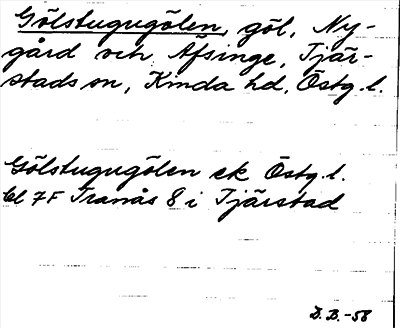 Gölstugugölen, göl, Ny-
gård och Åfsinge, Tjär-
stads sn, Kinda hd, Östg. l.
Gölstugugölen ek Östg. l.
bl 7F Tranås 8 i Tjärstad
D. B. -58